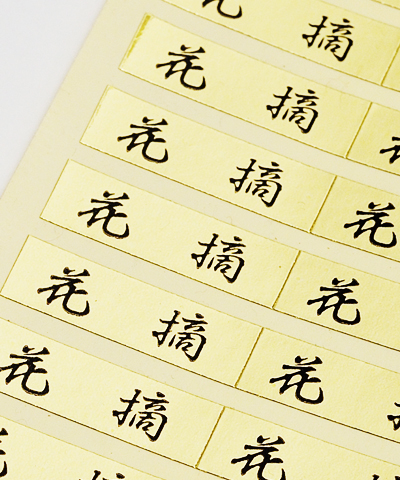 摘
花 摘
花 摘 花
花 摘 花
花 摘 花
花 摘 花